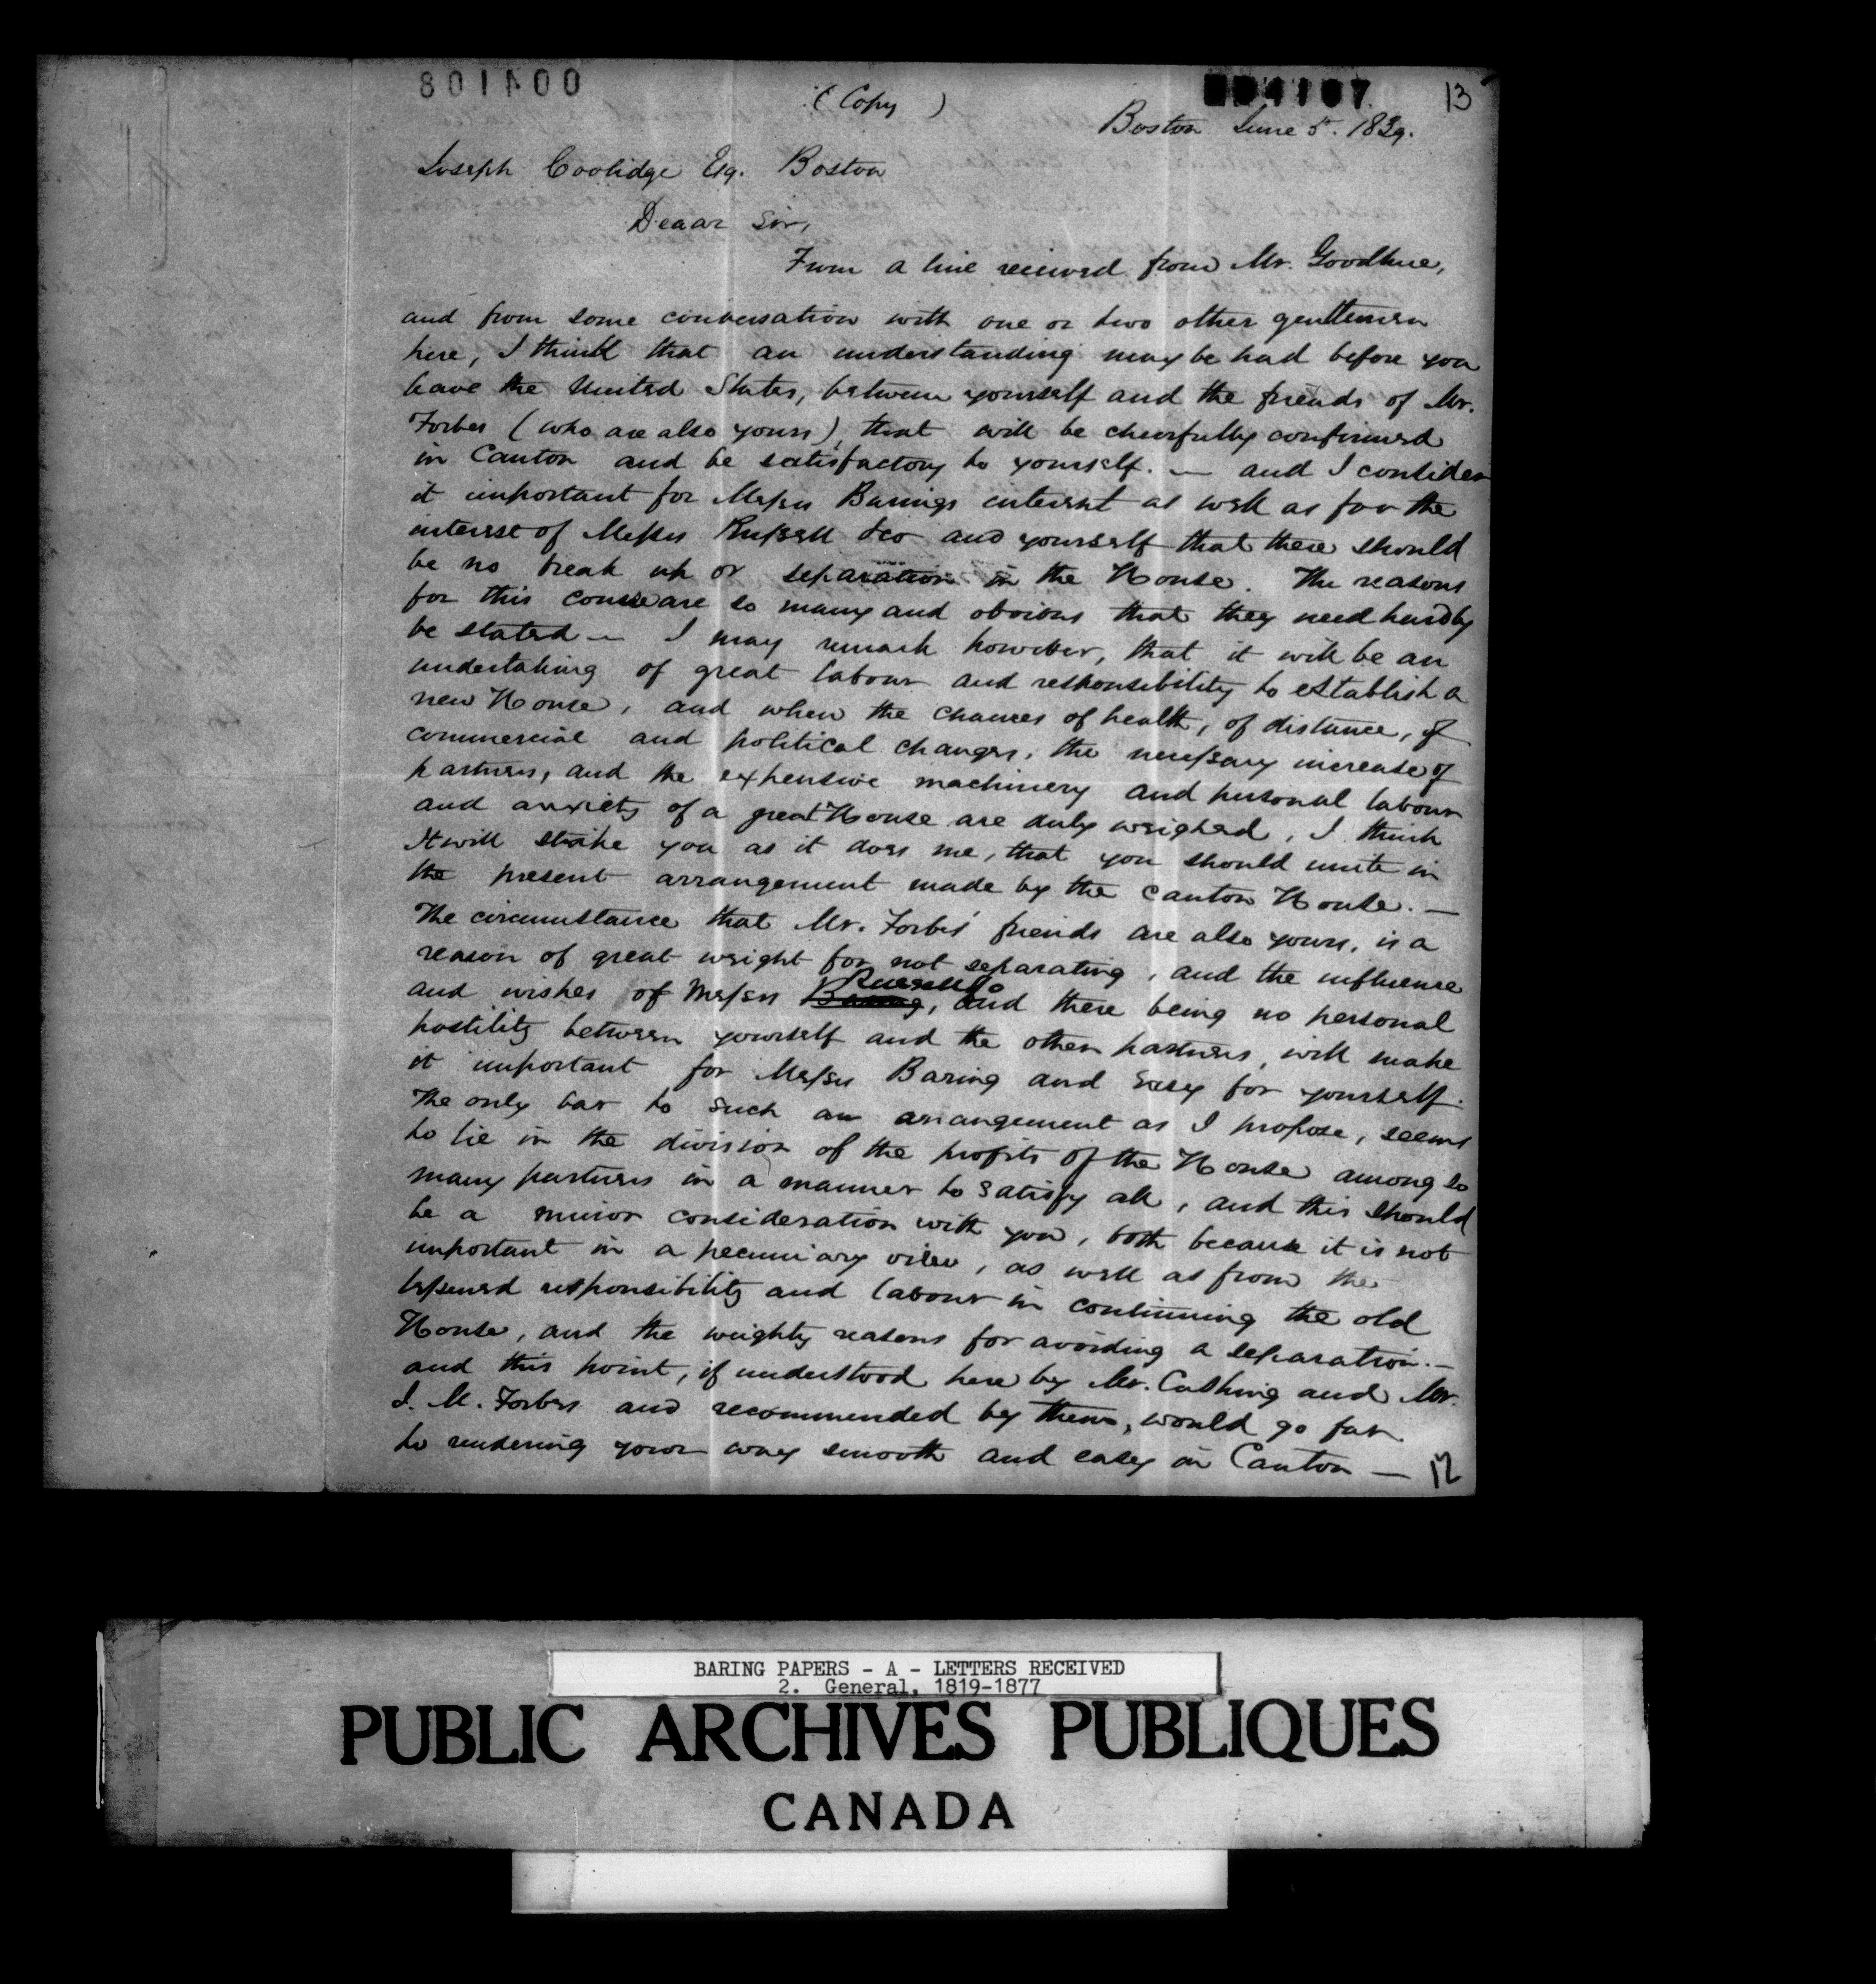 001108
(Copy)
004107
13
Boston June 5. 1839.
Joseph Coolidge Esq. Boston
Deaar Sir,
From a line received from Mr. Goodhue,
and from some conversation with one or two other gentlemen
here, I think that an understanding may be had before you
leave the United States, between yourself and the friends of Mr.
Forbes (who are also yours), that will be cheerfully confirmed
in Canton and be satisfactory to yourself. — and I consider
it important for Messrs Barings interest as well as for the
interest of Messrs Russell & Co and yourself that there should
be no break up or separation in the House. The reasons
for this course are so many and obvious that they need hardly
be stated — I may remark however, that it will be an
undertaking of great labour and responsibility to establish a
new House, and when the chances of health, of distance, of
commercial and political changes, the necessary increase of
partners, and the expensive machinery and personal labour
and anxiety of a great House are duly weighed, I think
It will strike you as it does me, that you should unite in
the present arrangement made by the Canton House. —
The circumstance that Mr. Forbes' friends are also yours, is a
reason of great weight for not separating, and the influence
and wishes of Messrs Baring, Russell & Co and there being no personal
hostility between yourself and the other partners, will make
it important for Messrs Baring and easy for yourself.
The only bar to such an arrangement as I propose, seems
to lie in the division of the profits of the House among so
many partners in a manner to satisfy all, and this should
be a minor consideration with you, both because it is not
important in a pecuniary view, as well as from the
lessened responsibility and labour in continuing the old
House, and the weighty reasons for avoiding a separation. —
and this point, if understood here by Mr. Cushing and Mr.
J. M. Forbes and recommended by them, would go far
to rendering your way smooth and easy in Canton —
12
BARING PAPERS - A - LETTERS RECEIVED
2. General, 1819-1877
PUBLIC ARCHIVES PUBLIQUES
CANADA